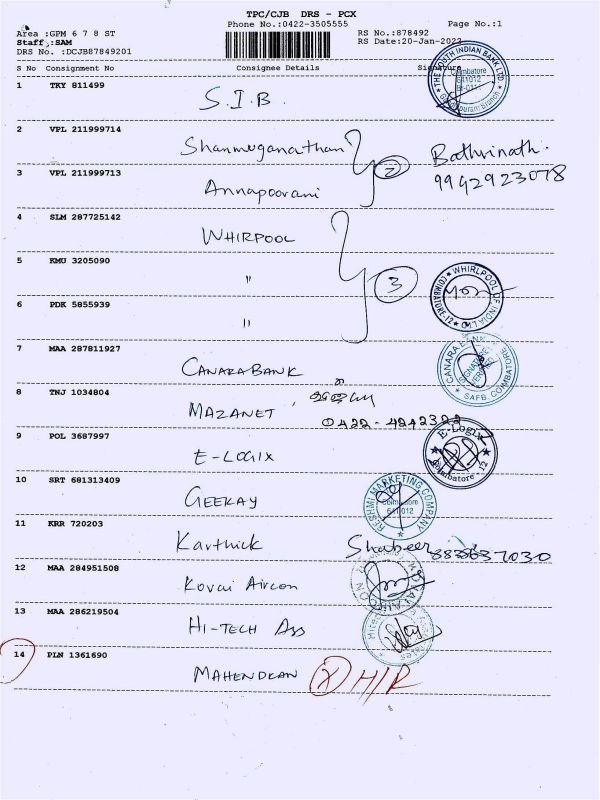 TPC/CJB DRS - PCX
Phone No.:0422-3505555
Page No.:1
Area :GPM 6 7 8 ST
RS No.:878492
Staff :SAM
RS Date:20-Jan-2022
DRS No. :DCJB87849201
S No Consignment No Consignee Details Signature
THE SOUTH INDIAN BANK LTD. Coimbatore 641012
1 TKY 811499 S.I.B.
2 VPL 211999714 Shanmuganathan
2 Bathrinath.
3 VPL 211999713 Annapoorani 9942923078
4 SLM 287725142 WHIRPOOL
5 KMU 3205090 "
3 WHIRLPOOL OF INDIA LTD COIMBATORE-12
6 PDK 5855939 "
7 MAA 287811927 CANARA BANK
CANARA BANK SIGNATURE VERIFIED SAFB COIMBATORE
8 TNJ 1034804 MAZANET
9 POL 3687997 E-LOGIX
E-Logix Coimbatore-12
10 SRT 681313409 GEEKAY
RESHMI MARKETING COMPANY Coimbatore 641 012
11 KRR 720203 Karthick Shabeer
12 MAA 284951508 Kovai Aircon
13 MAA 286219504 HI-TECH Ass
14 PLN 1361690 MAHENDRAN X H/R